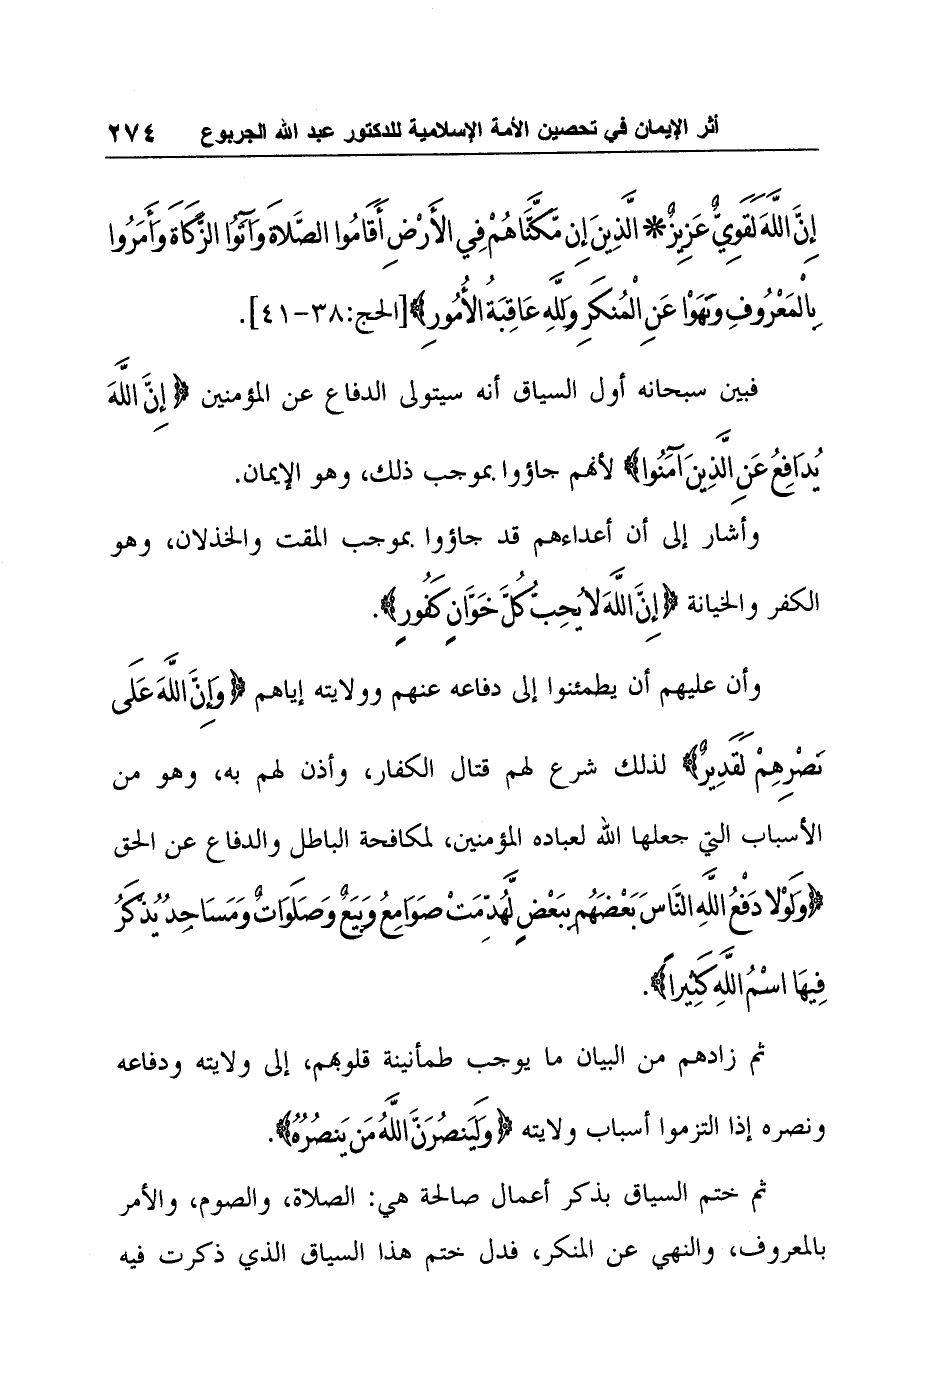 أثر الإيمان في تحصين الأمة الإسلامية للدكتور عبد الله الجربوع ٢٧٤
إِنَّ اللَّهَ لَقَوِيٌّ عَزِيزٌ * الَّذِينَ إِن مَّكَّنَّاهُمْ فِي الأَرْضِ أَقَامُوا الصَّلاَةَ وَآتَوُا الزَّكَاةَ وَأَمَرُوا
بِالْمَعْرُوفِ وَنَهَوْا عَنِ الْمُنكَرِ وَلِلَّهِ عَاقِبَةُ الأُمُورِ﴾ [الحج:٣٨-٤١].
فبين سبحانه أول السياق أنه سيتولى الدفاع عن المؤمنين ﴿إِنَّ اللَّهَ
يُدَافِعُ عَنِ الَّذِينَ آمَنُوا﴾ لأنهم جاؤوا بموجب ذلك، وهو الإيمان.
وأشار إلى أن أعداءهم قد جاؤوا بموجب المقت والخذلان، وهو
الكفر والخيانة ﴿إِنَّ اللَّهَ لاَ يُحِبُّ كُلَّ خَوَّانٍ كَفُورٍ﴾.
وأن عليهم أن يطمئنوا إلى دفاعه عنهم وولايته إياهم ﴿وَإِنَّ اللَّهَ عَلَى
نَصْرِهِمْ لَقَدِيرٌ﴾ لذلك شرع لهم قتال الكفار، وأذن لهم به، وهو من
الأسباب التي جعلها الله لعباده المؤمنين، لمكافحة الباطل والدفاع عن الحق
﴿وَلَوْلا دَفْعُ اللَّهِ النَّاسَ بَعْضَهُم بِبَعْضٍ لَّهُدِّمَتْ صَوَامِعُ وَبِيَعٌ وَصَلَوَاتٌ وَمَسَاجِدُ يُذْكَرُ
فِيهَا اسْمُ اللَّهِ كَثِيراً﴾.
ثم زادهم من البيان ما يوجب طمأنينة قلوبهم، إلى ولايته ودفاعه
ونصره إذا التزموا أسباب ولايته ﴿وَلَيَنصُرَنَّ اللَّهُ مَن يَنصُرُهُ﴾.
ثم ختم السياق بذكر أعمال صالحة هي: الصلاة، والصوم، والأمر
بالمعروف، والنهي عن المنكر، فدل ختم هذا السياق الذي ذكرت فيه